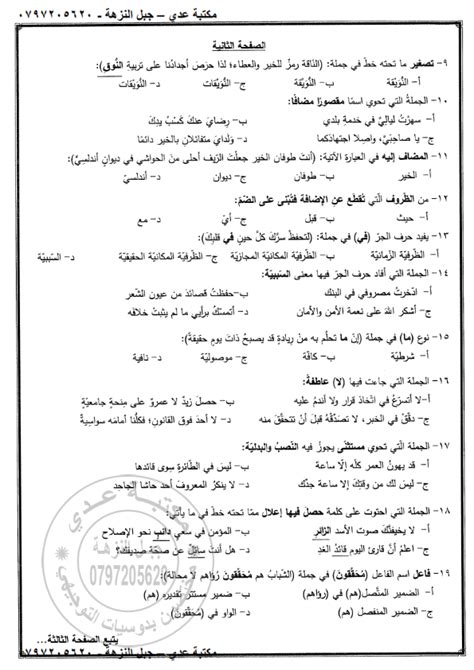 مكتبة عدي – جبل النزهة - ٠٧٩٧٢٠٥٦٢٠
الصفحة الثانية
٩- تصغير ما تحته خطّ في جملة: (النّاقة رمزٌ للخير والعطاء؛ لذا حرَصَ أجدادُنا على تربيةِ النُّوق):
أ- النُّوَيْقَة ب- النُّوَيْقَة ج- النُّوَيْقات د- النُّوَيْقات
١٠- الجملةُ التي تحوي اسمًا مقصورًا مضافًا:
أ- سهرْتُ لياليَّ في خدمةِ بلدي ب- رِضايَ عنكَ كَسْبُ يدِكَ
ج- يا صاحبَيَّ، واصِلا اجتهادَكما د- وَلَدايَ متفائلانِ بالخير دائمًا
١١- المضاف إليه في العبارة الآتية: (أنتَ طوفان الخير جعلْتَ الزيف أحلى منَ الحواشي في ديوانٍ أندلسيٍّ):
أ- الخير ب- طوفان ج- ديوان د- أندلسيّ
١٢- من الظّروف الّتي تُقطَع عنِ الإضافة فتُبْنى على الضّمّ:
أ- حيث ب- قبل ج- أيّ د- مع
١٣- يفيد حرف الجرّ (في) في جملة: (لتحفظْ سرَّكَ كلَّ حينٍ في قلبِكَ):
أ- الظّرفيّة الزّمانيّة ب- الظّرفيّة المكانيّة المجازيّة ج- الظّرفيّة المكانيّة الحقيقيّة د- السّببيّة
١٤- الجملة التي أفاد حرف الجرّ فيها معنى السببيّة:
أ- ادّخرتُ مصروفي في البنك ب-حفظتُ قصائدَ من عيونِ الشّعر
ج- أشكر اللهَ على نعمة الأمن والأمان د- أتمسّكُ برأيي ما لم يثبتْ خلافه
١٥- نوع (ما) في جملة (إنّ ما تحلُم به منْ رِيادةٍ قد يصبحُ ذاتَ يومٍ حقيقةً):
أ- شرطيّة ب- كافّة ج- موصوليّة د- نافية
١٦- الجملة التي جاءت فيها (لا) عاطفةً:
أ-لا أتسرّعُ في اتّخاذ قرارٍ ولا أندمُ عليه ب- حصلَ زيدٌ لا عمروٌ على مِنحةٍ جامعيّةٍ
ج- دقّقْ في الخبر، لا تصدّقْهُ قبلَ أنْ تتحقّقَ منه د- لا أحدَ فوق القانونِ؛ فكلُّنا أمامَه سواسيةٌ
١٧- الجملة الّتي تحوي مستثنًى يجوزُ فيه النّصبُ والبدليّة:
أ- قد يهونُ العمر كلّه إلّا ساعة ب- ليسَ في الطّائرةِ سِوى قائدها
ج- ليسَ لك من وقتِكَ إلّا ساعة جدّكَ د- لا ينكرُ المعروفَ أحدٌ حاشا الجاحد
١٨- الجملة الّتي احتوت على كلمة حصلَ فيها إعلال ممّا تحته خطّ في ما يأتي:
أ- لا يخيفنَّكَ صوتُ الأسدِ الزّائر ب- المؤمن في سعيٍ دائبٍ نحو الإصلاح
ج- اعلمْ أنّ قارئَ اليومِ قائدُ الغدِ د- هل أنتَ سائلٌ عن صحّةِ صديقِكَ؟
١٩- فاعل اسم الفاعل (مُحَقِّقون) في جملة (الشّبابُ هم مُحَقِّقونَ رُؤاهم لا محالة):
أ- الضمير المتّصل(هم) في (رؤاهم) ب- ضمير مستتر تقديره (هم)
ج- الضمير المنفصل (هم) د- الواو في (محقّقون)
مكتبة عدي
جبل النزهة
0797205620
يتبع الصفحة الثالثة....
مكتبة عدي – جبل النزهة - ٠٧٩٧٢٠٥٦٢٠